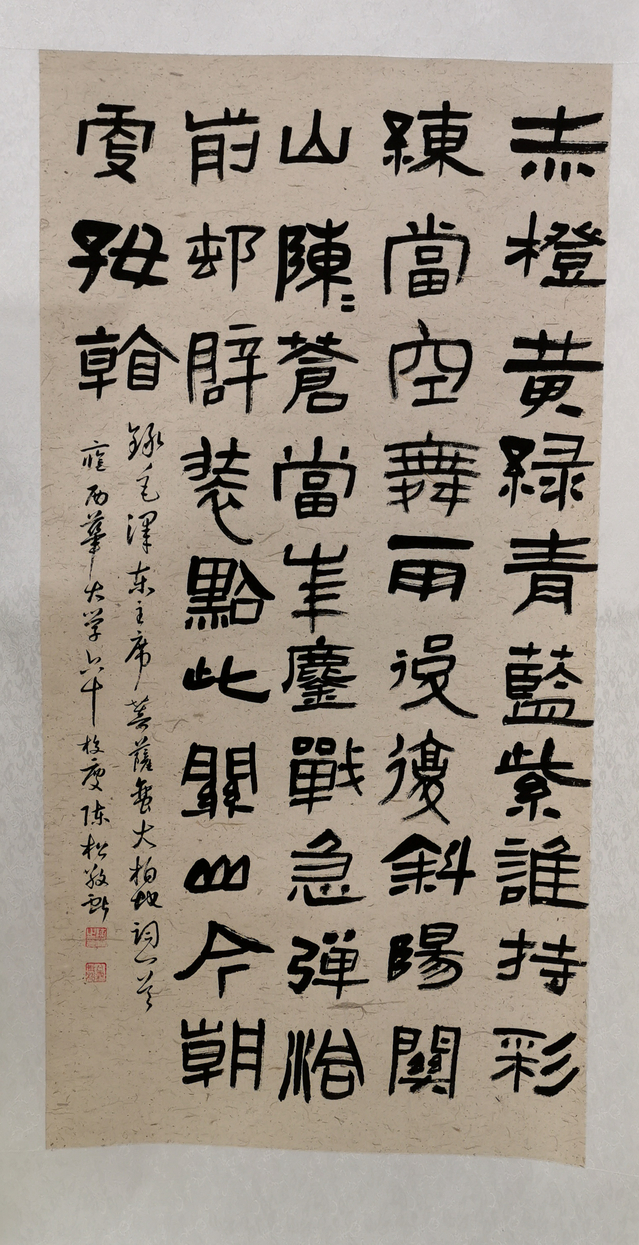 赤橙黄綠青藍紫誰持彩
練當空舞雨後復斜陽關
山陳〻蒼當年鏖戰急彈洞
前邨壁裝點此關山今朝
更好看
錄毛澤东主席菩薩蠻大柏地詞一首
西華大学六十校慶陈松敬